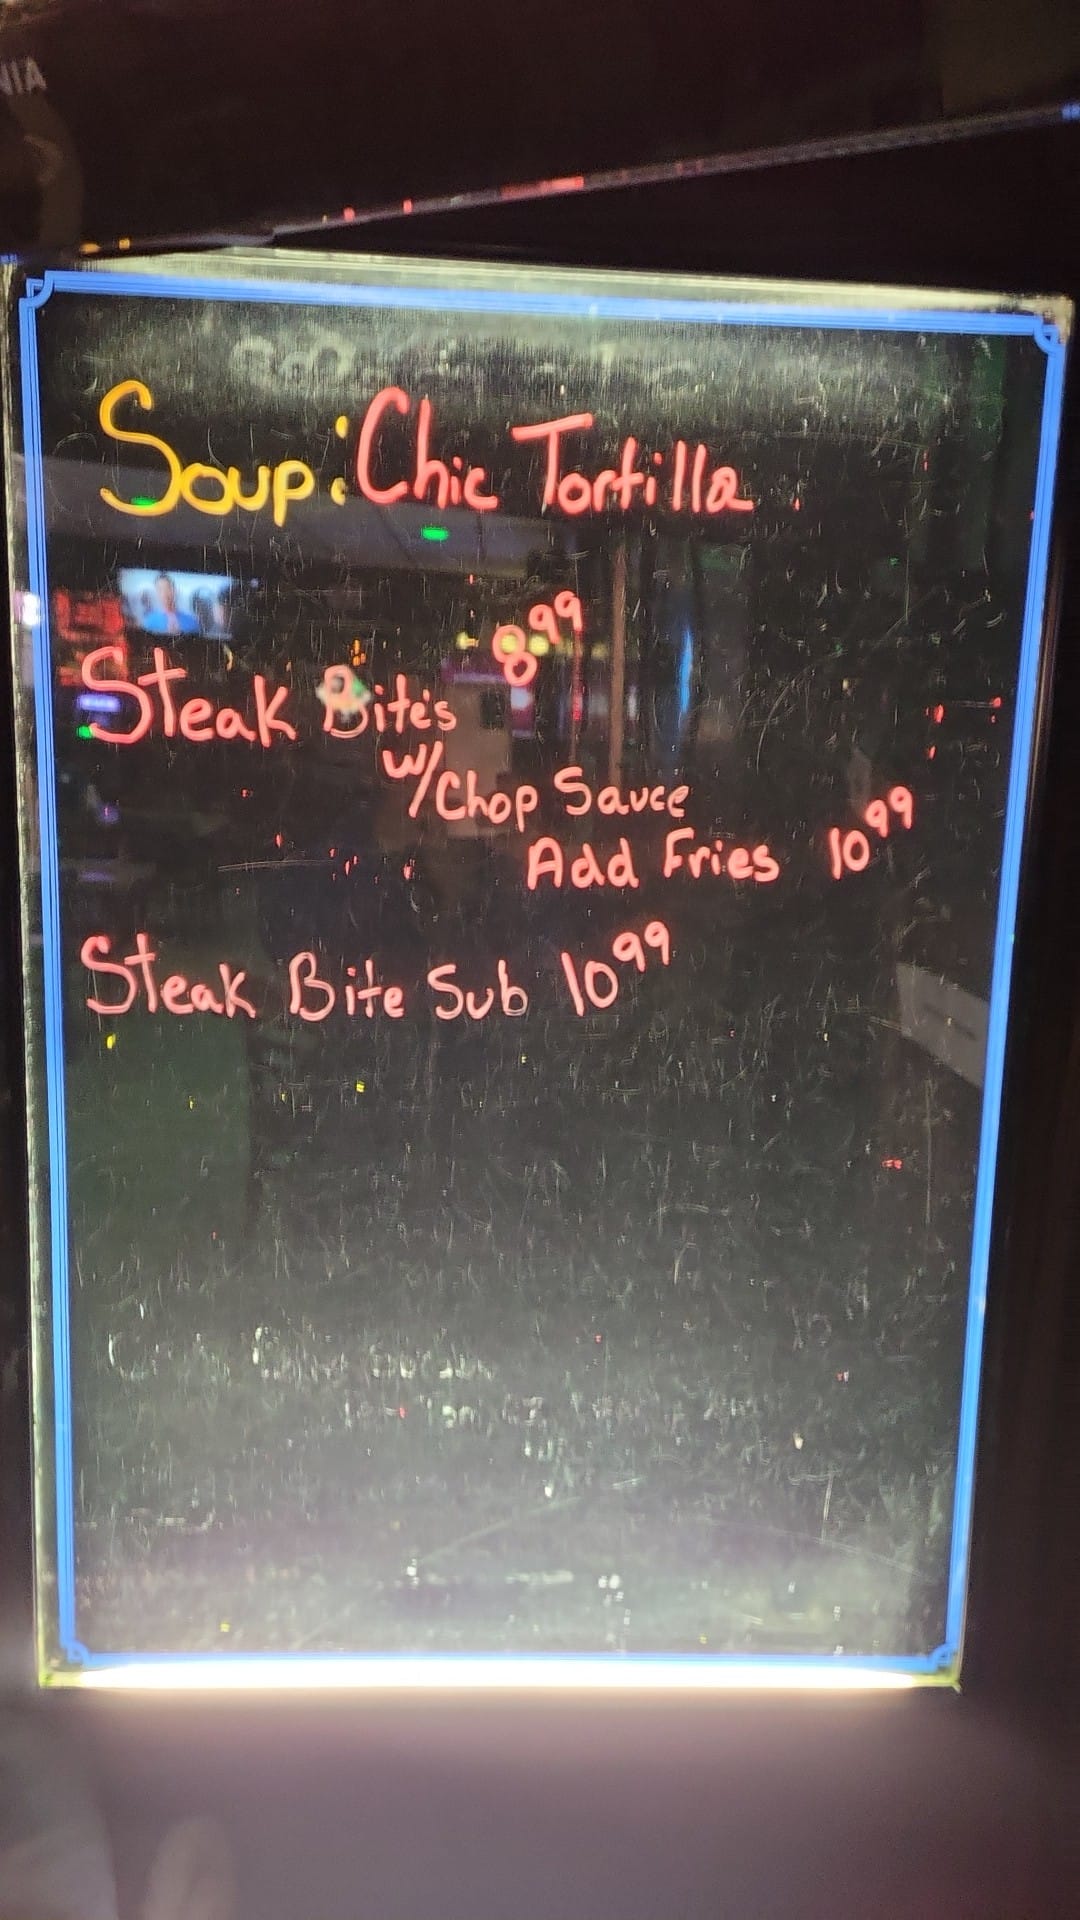 Soup: Chic Tortilla
Steak Bite's 8.99
w/Chop Sauce
Add Fries 10.99
Steak Bite Sub 10.99